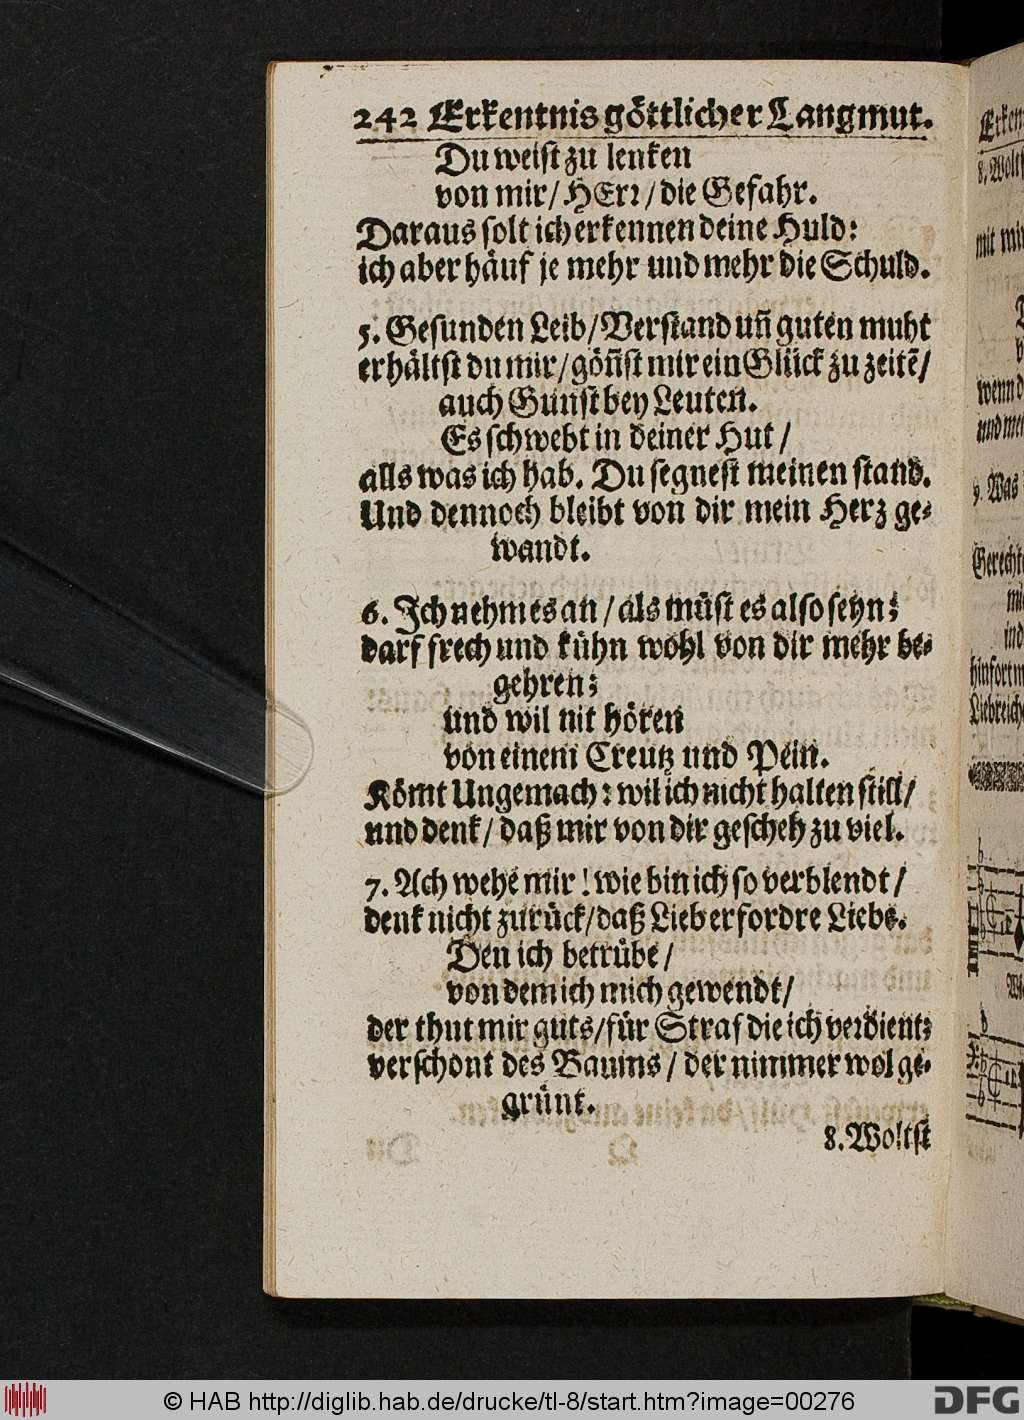 242 Erkentnis göttlicher Langmut.
Du weist zu lenken
von mir/ HErr/ die Gefahr.
Daraus solt ich erkennen deine Huld:
ich aber häuf je mehr und mehr die Schuld.
5. Gesunden Leib/ Verstand uñ guten muht
erhältst du mir/ göñst mir ein Glück zu zeitē/
auch Gunst bey Leuten.
Es schwebt in deiner Hut/
alls was ich hab. Du segnest meinen stand.
Und dennoch bleibt von dir mein Herz ge-
wandt.
6. Ich nehm es an/ als müst es also seyn;
darf frech und kühn wohl von dir mehr be-
gehren;
und wil nit hören
von einem Creutz und Pein.
Kömt Ungemach: wil ich nicht halten still/
und denk/ daß mir von dir gescheh zu viel.
7. Ach wehe mir! wie bin ich so verblendt/
denk nicht zurück/ daß Lieb erfordre Liebe.
Den ich betrübe/
von dem ich mich gewendt/
der thut mir guts/ für Straf die ich verdient;
verschont des Baums/ der nimmer wol ge-
grünt.
8. Woltst
Erken
8. Wolts
mit mir
wenn d
und mei
9. Was
Gerechte
mi
ind
hinfort m
Liebreich
© HAB http://diglib.hab.de/drucke/tl-8/start.htm?image=00276
DFG